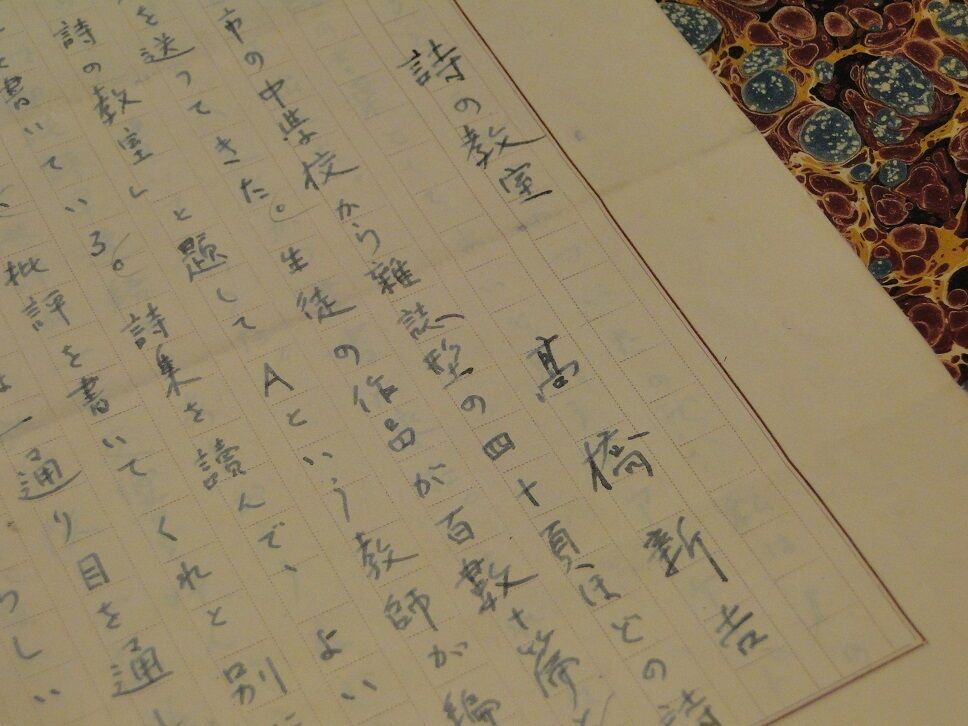 詩の教室
高橋新吉
市の中学校から雑誌型の四十頁ほどの詩
を送ってきた。生徒の作品が百数十篇
詩の教室」と題してAという教師が編
書いている。詩集を讀んで、よい
批評を書いてくれと別に
一通り目を通
らしい